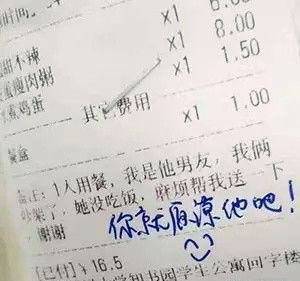 甜不辣 x1 6.00
瘦肉粥 x1 8.00
煮鸡蛋 x1 1.50
其它费用
餐盒 x1 1.00
备注: 1人用餐, 我是他男友, 我俩
吵架了, 她没吃饭, 麻烦帮我送一下
, 谢谢
你就原谅他吧!
[已付] ¥16.5
学生公寓